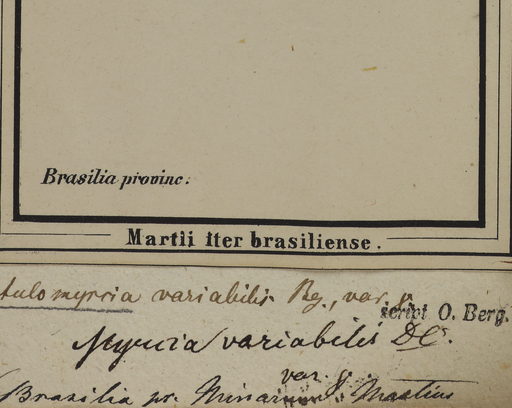 Brasilia provinc.
Martii iter brasiliense.
tulomyrcia variabilis Bg., var.
script O. Berg.
Myrcia variabilis DC.
var.
Brasilia pr. Minarum Martius